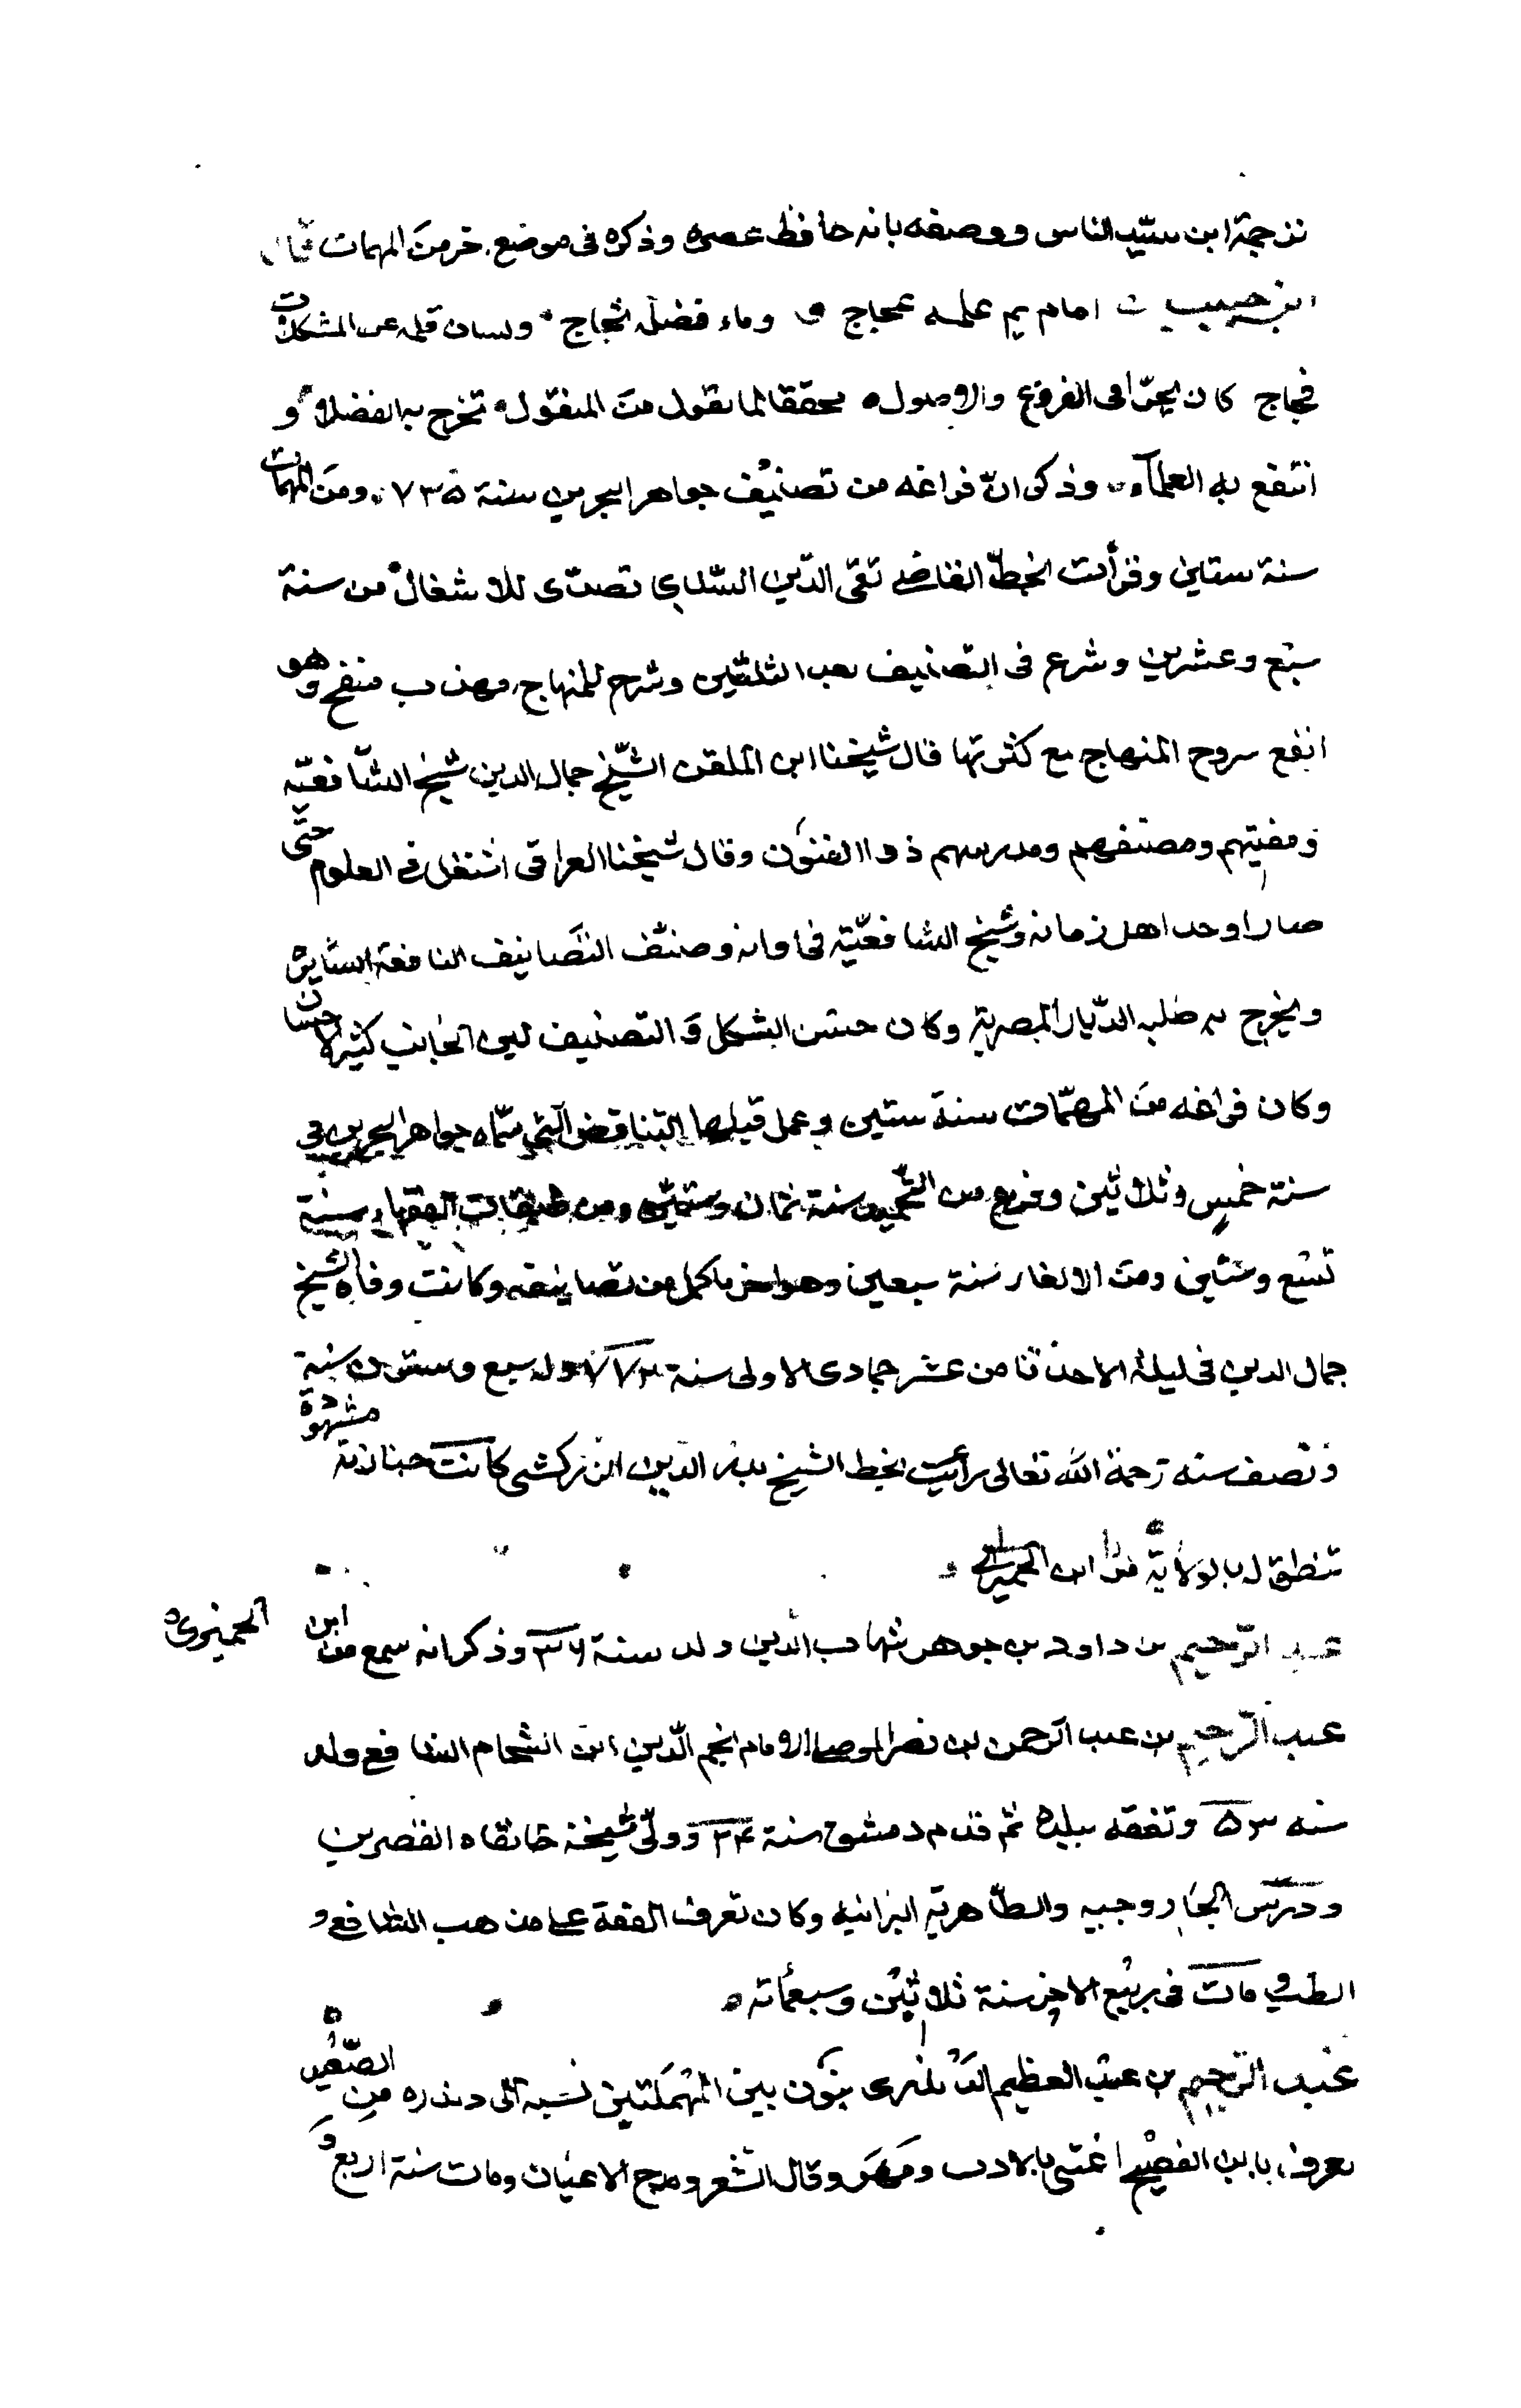 ترجمة ابن سيّد الناس ووصفه بانه حافظ عصره وذكره فى موضع اخر من المهمات قال
ابن حبيب امام يم علمه عجاج وماء فضله ثجاج ولسان قلمه عن المشكلات
فجاج كان بحرا فى الفروع والاصول محققا لما يقول من المنقول تخرج به الفضلاء و
انتفع به العلماء وذكر انّ فراغه من تصنيف جواهر البحرين سنة ٧٣٥ ومن المهمات
سنة ستين وقرأت بخطّ القاضى تقى الدّين الاسدى تصدّى للاشغال من سنة
سبع وعشرين وشرع فى التصنيف بعد الثلثين وشرح للمنهاج مهذب منقح وهو
انفع شروح المنهاج مع كثرتها قال شيخنا ابن الملقن الشّيخ جمال الدين شيخ الشّافعيّه
ومفتيهم ومصنفهم ومدرسهم ذوا الفنون وقال شيخنا العراقى اشتغل فى العلوم حتّى
صار اوحد اهل زمانه وشيخ الشافعيّة فى اوانه وصنّف التّصانيف النافعة السّايره
وتخرج به طلبه الدّيار المصرية وكان حسن الشكل و التصنيف لين الجانب كثير الاحسان
وكان فراغه من المهمّات سنة ستين وعمل قبلها التناقض الّتى سمّاه جواهر البحرين فى
سنة خمس وثلاثين وفرغ من التّمهيد سنة ثمان وستين ومن طبقات الفقهاء سنة
تسع وستين ومن الالغاز سنة سبعين وهو اخر ما كمل من تصانيفه وكانت وفاة الشيخ
جمال الدين فى ليلة الاحد ثامن عشر جمادى الاولى سنة ٧٧٢ وله سبع وستون سنة
ونصف سنه رحمة الله تعالى رأيت بخط الشيخ بدر الدين الزركشى كانت جنازته مشهودة
تنطق له بالولاية
عبد الرّحيم بن داود بن جوهر شهاب الدين ولد سنة ٣٦ وذكر انه سمع من ابن الحميرى
عبد الرّحيم بن عبد الرّحمن بن نصر الموصلى الامام نجم الدّين ابن الشحام الشافعى ولد
سنه ٥٣ وتفقه ببلده ثم قدم دمشق سنة ٢٤ وولّى شيخة خانقاه القصرين
ودرّس الجاروجيه والظّاهريّه البرانيه وكان يعرف الفقه على مذهب الشافعى و
الطب ومات فى ربيع الاخر سنة ثلاثين وسبعمائه
عبد الرّحيم بن عبد العظيم الدّندرى بنون بين المهملتين نسبه الى دندره من الصّعيد
يعرف بابن الفصيح اعتنى بالادب ومهر وقال الشعر ومدح الاعيان ومات سنة اربع و